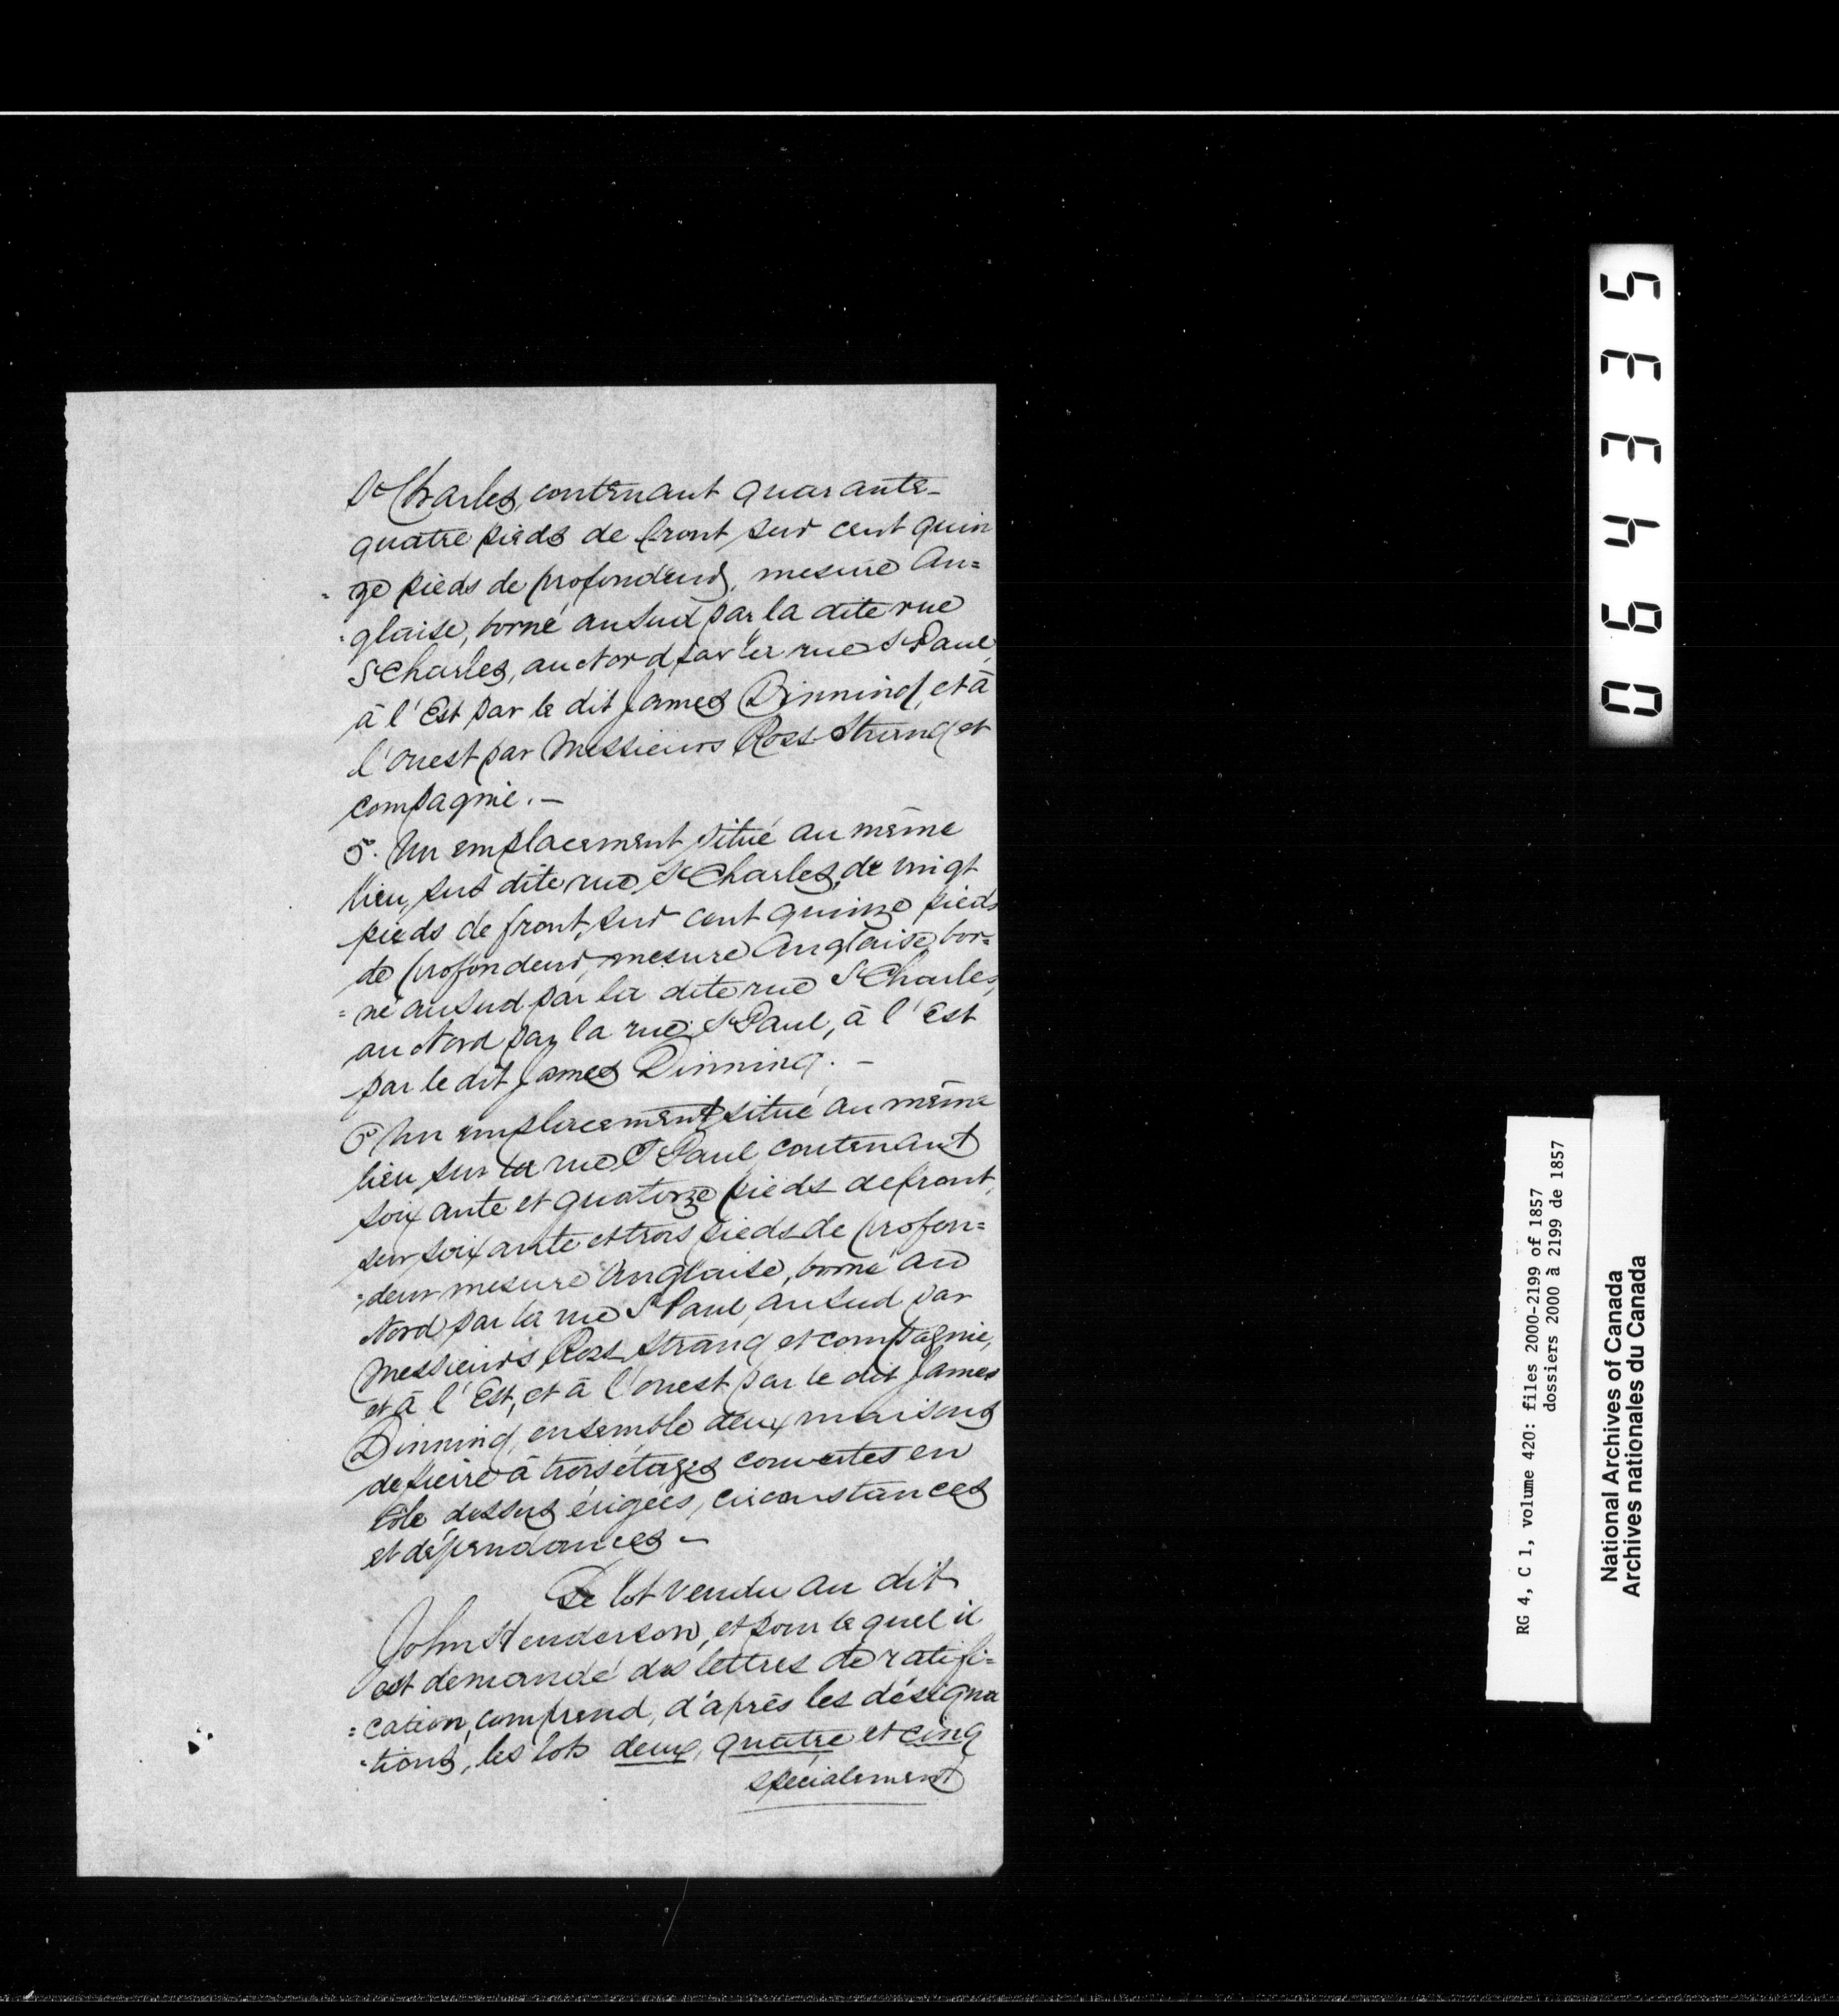 St Charles, contenant quarante-
quatre pieds de front, sur cent quin
=ze pieds de profondeur, mesure An=
=glaise, borné au Sud par la dite rue
St Charles, au Nord par la rue St Paul,
à l'Est par le dit James Dinning, et à
l'ouest par Messieurs Ross Strang et
compagnie. —
5º. Un emplacement situé au même
lieu, sus dite rue, St Charles, de vingt
pieds de front, sur cent quinze pieds
de profondeur, mesure Anglaise, bor=
=né au Sud par la dite rue St Charles,
au Nord par la rue St Paul, à l'Est
par le dit James Dinning. —
6º Un emplacement situé au même
lieu, sur la rue St Paul contenant
soixante et quatorze pieds de front,
sur soixante et trois pieds de profon=
=deur mesure Anglaise, borné au
Nord par la rue St Paul, au Sud par
Messieurs Ross Strang et compagnie,
et à l'Est, et à l'ouest par le dit James
Dinning, ensemble deux maisons
de pierre à trois étages couvertes en
tôle dessus érigées, circonstances
et dépendances —
Le lot vendu au dit
John Henderson, et pour lequel il
est demandé des lettres de ratifi=
=cation, comprend, d'après les désigna
=tions, les lots deux, quatre et cinq
spécialement
064335
RG 4, C 1, volume 420: files 2000-2199 of 1857
dossiers 2000 à 2199 de 1857
National Archives of Canada
Archives nationales du Canada